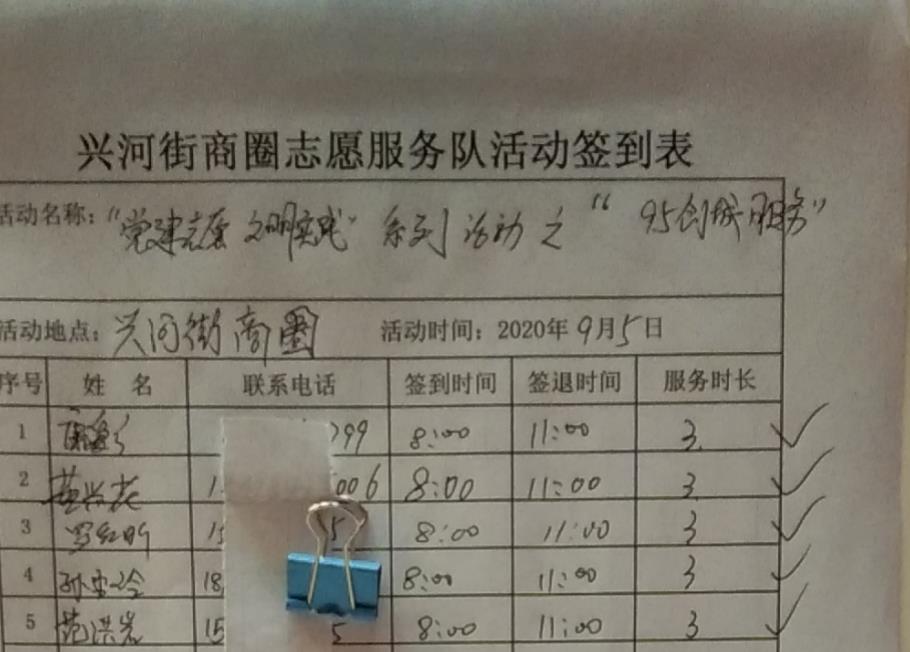 兴河街商圈志愿服务队活动签到表
活动名称:“党建志愿 文明实践” 系列活动之“ 95创城服务”
活动地点: 兴河街商圈 活动时间: 2020年9月5日
序号 姓 名 联系电话 签到时间 签退时间 服务时长
1 299 8:00 11:00 3
2 黄兴龙 1 006 8:00 11:00 3
3 罗红昕 15 5 8:00 11:00 3
4 18 8:00 11:00 3
5 范洪岩 15 5 8:00 11:00 3